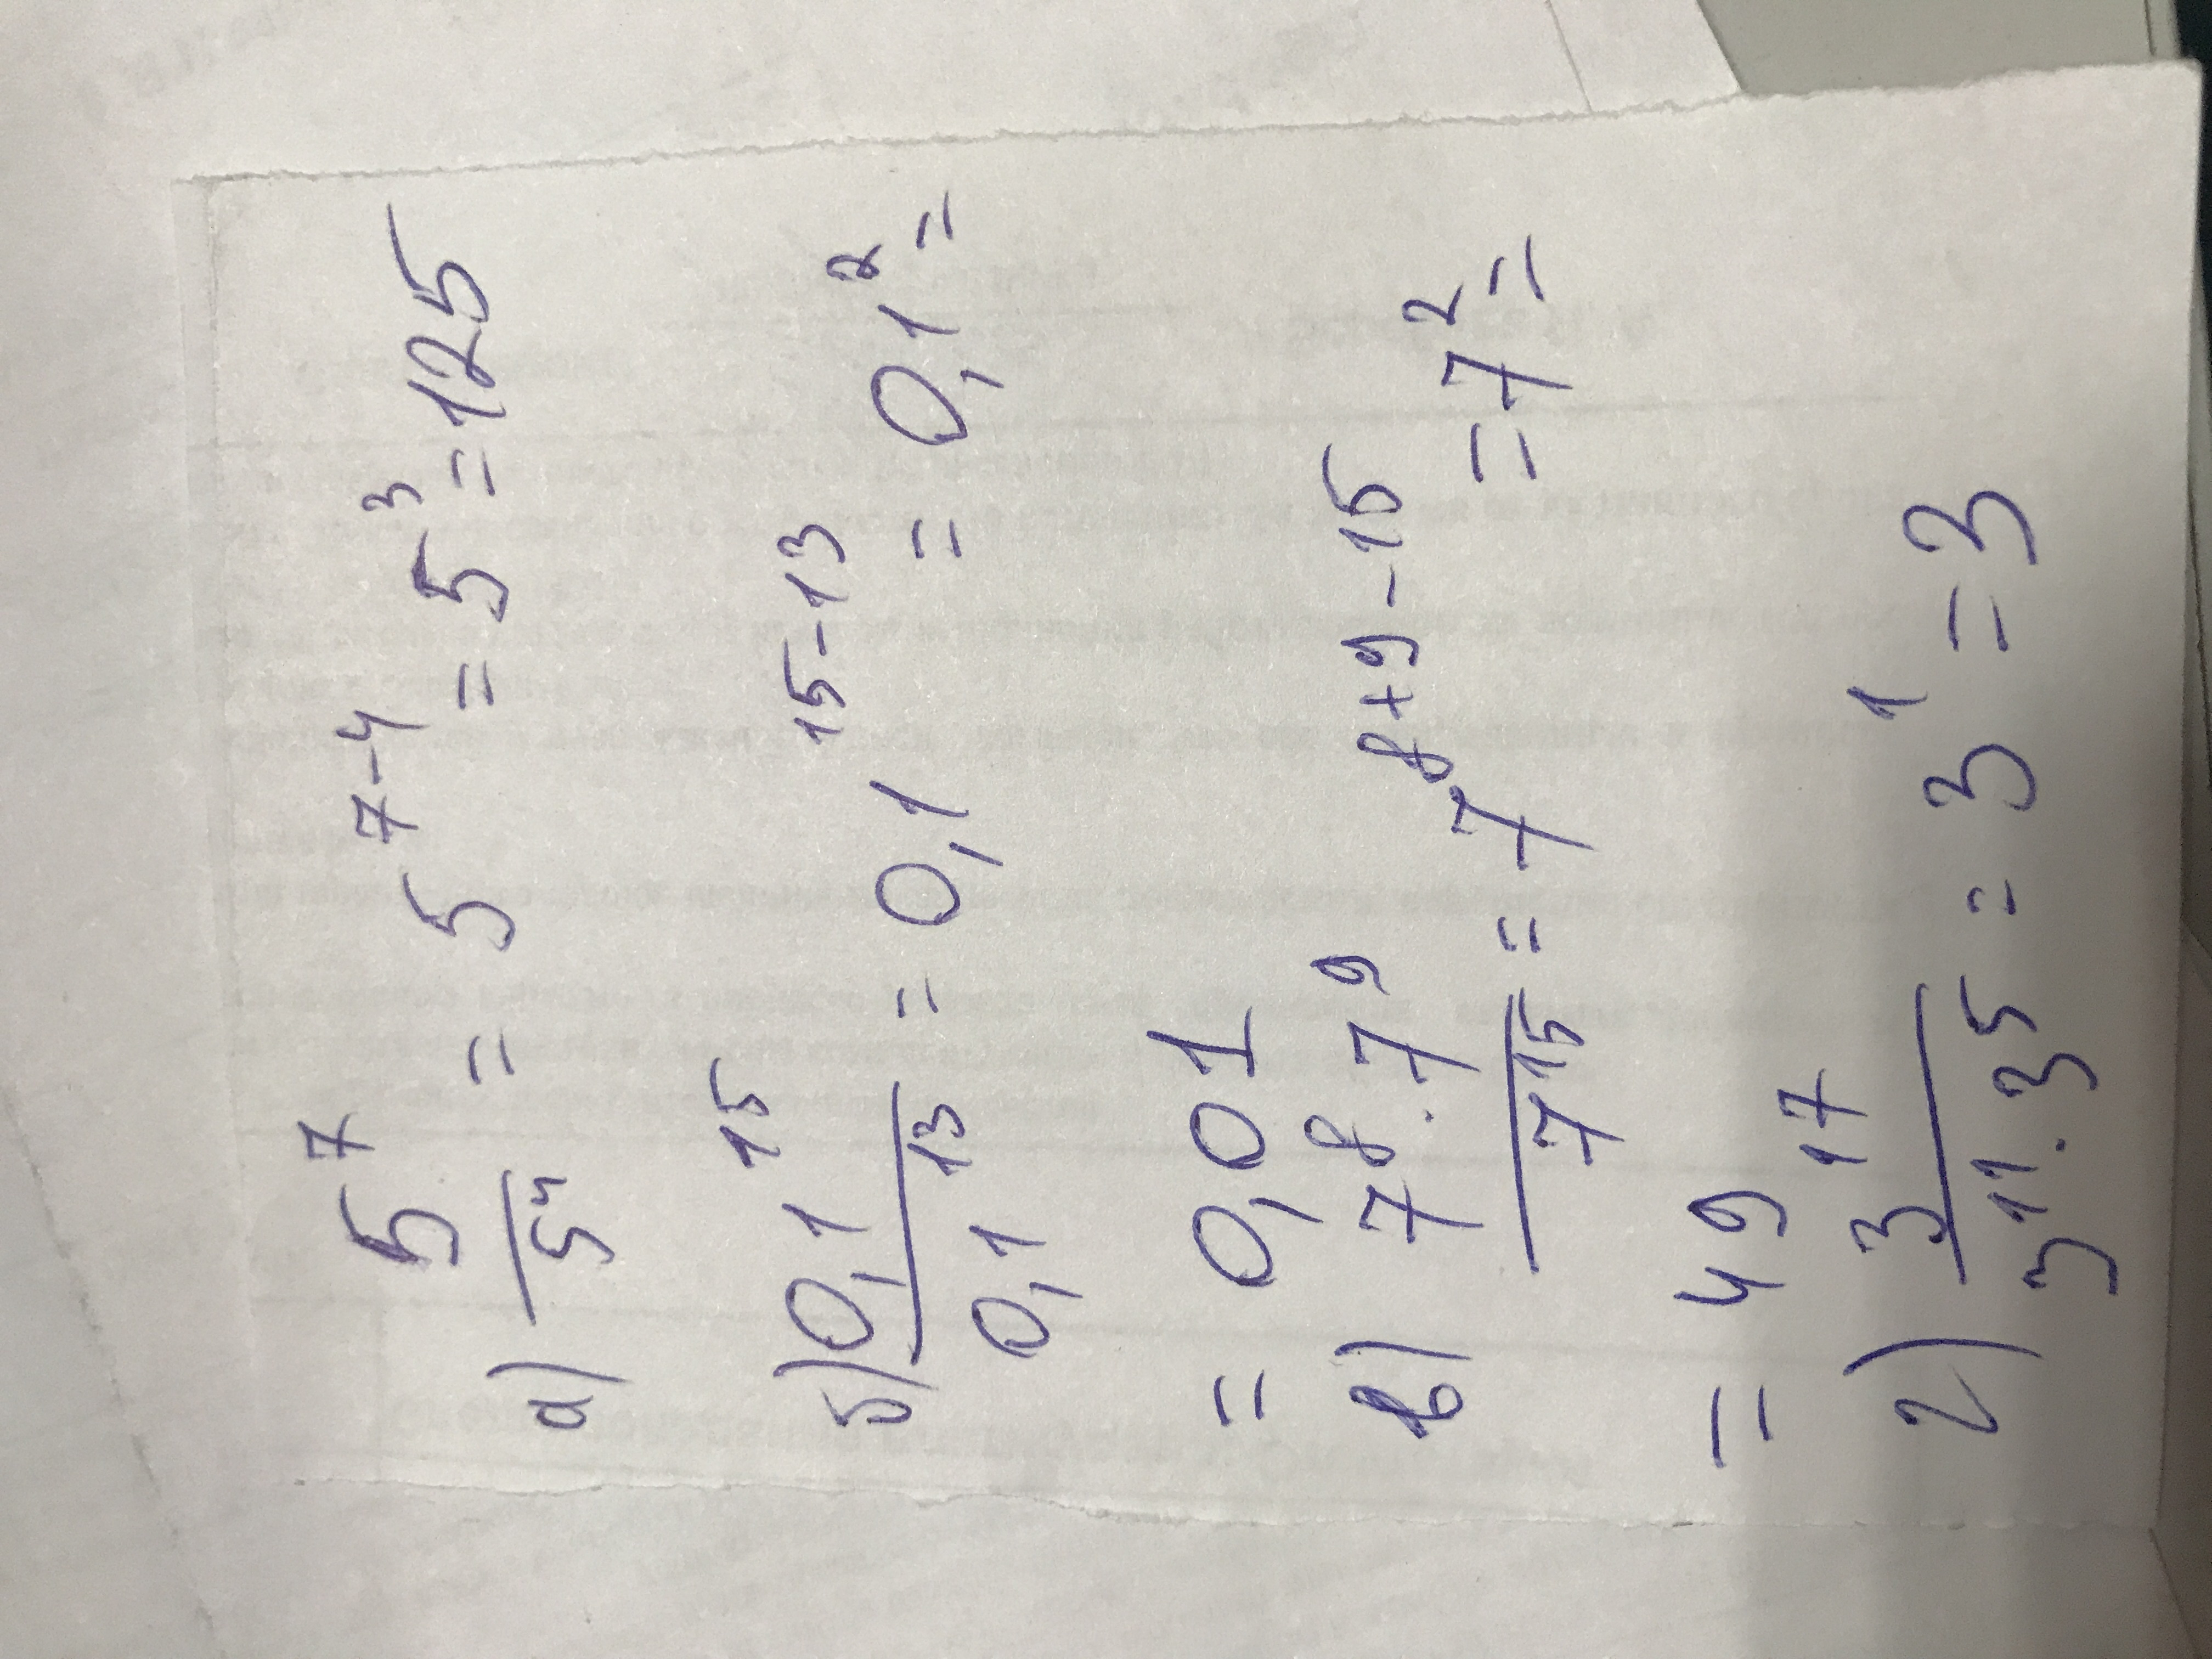 а) 5⁷/5⁴ = 5⁷⁻⁴ = 5³ = 125
б) 0,1¹⁵/0,1¹³ = 0,1¹⁵⁻¹³ = 0,1² =
= 0,01
в) 7⁸·7⁹/7¹⁵ = 7⁸⁺⁹⁻¹⁵ = 7² =
= 49
г) 3¹⁷/3¹¹·3⁵ = 3¹ = 3